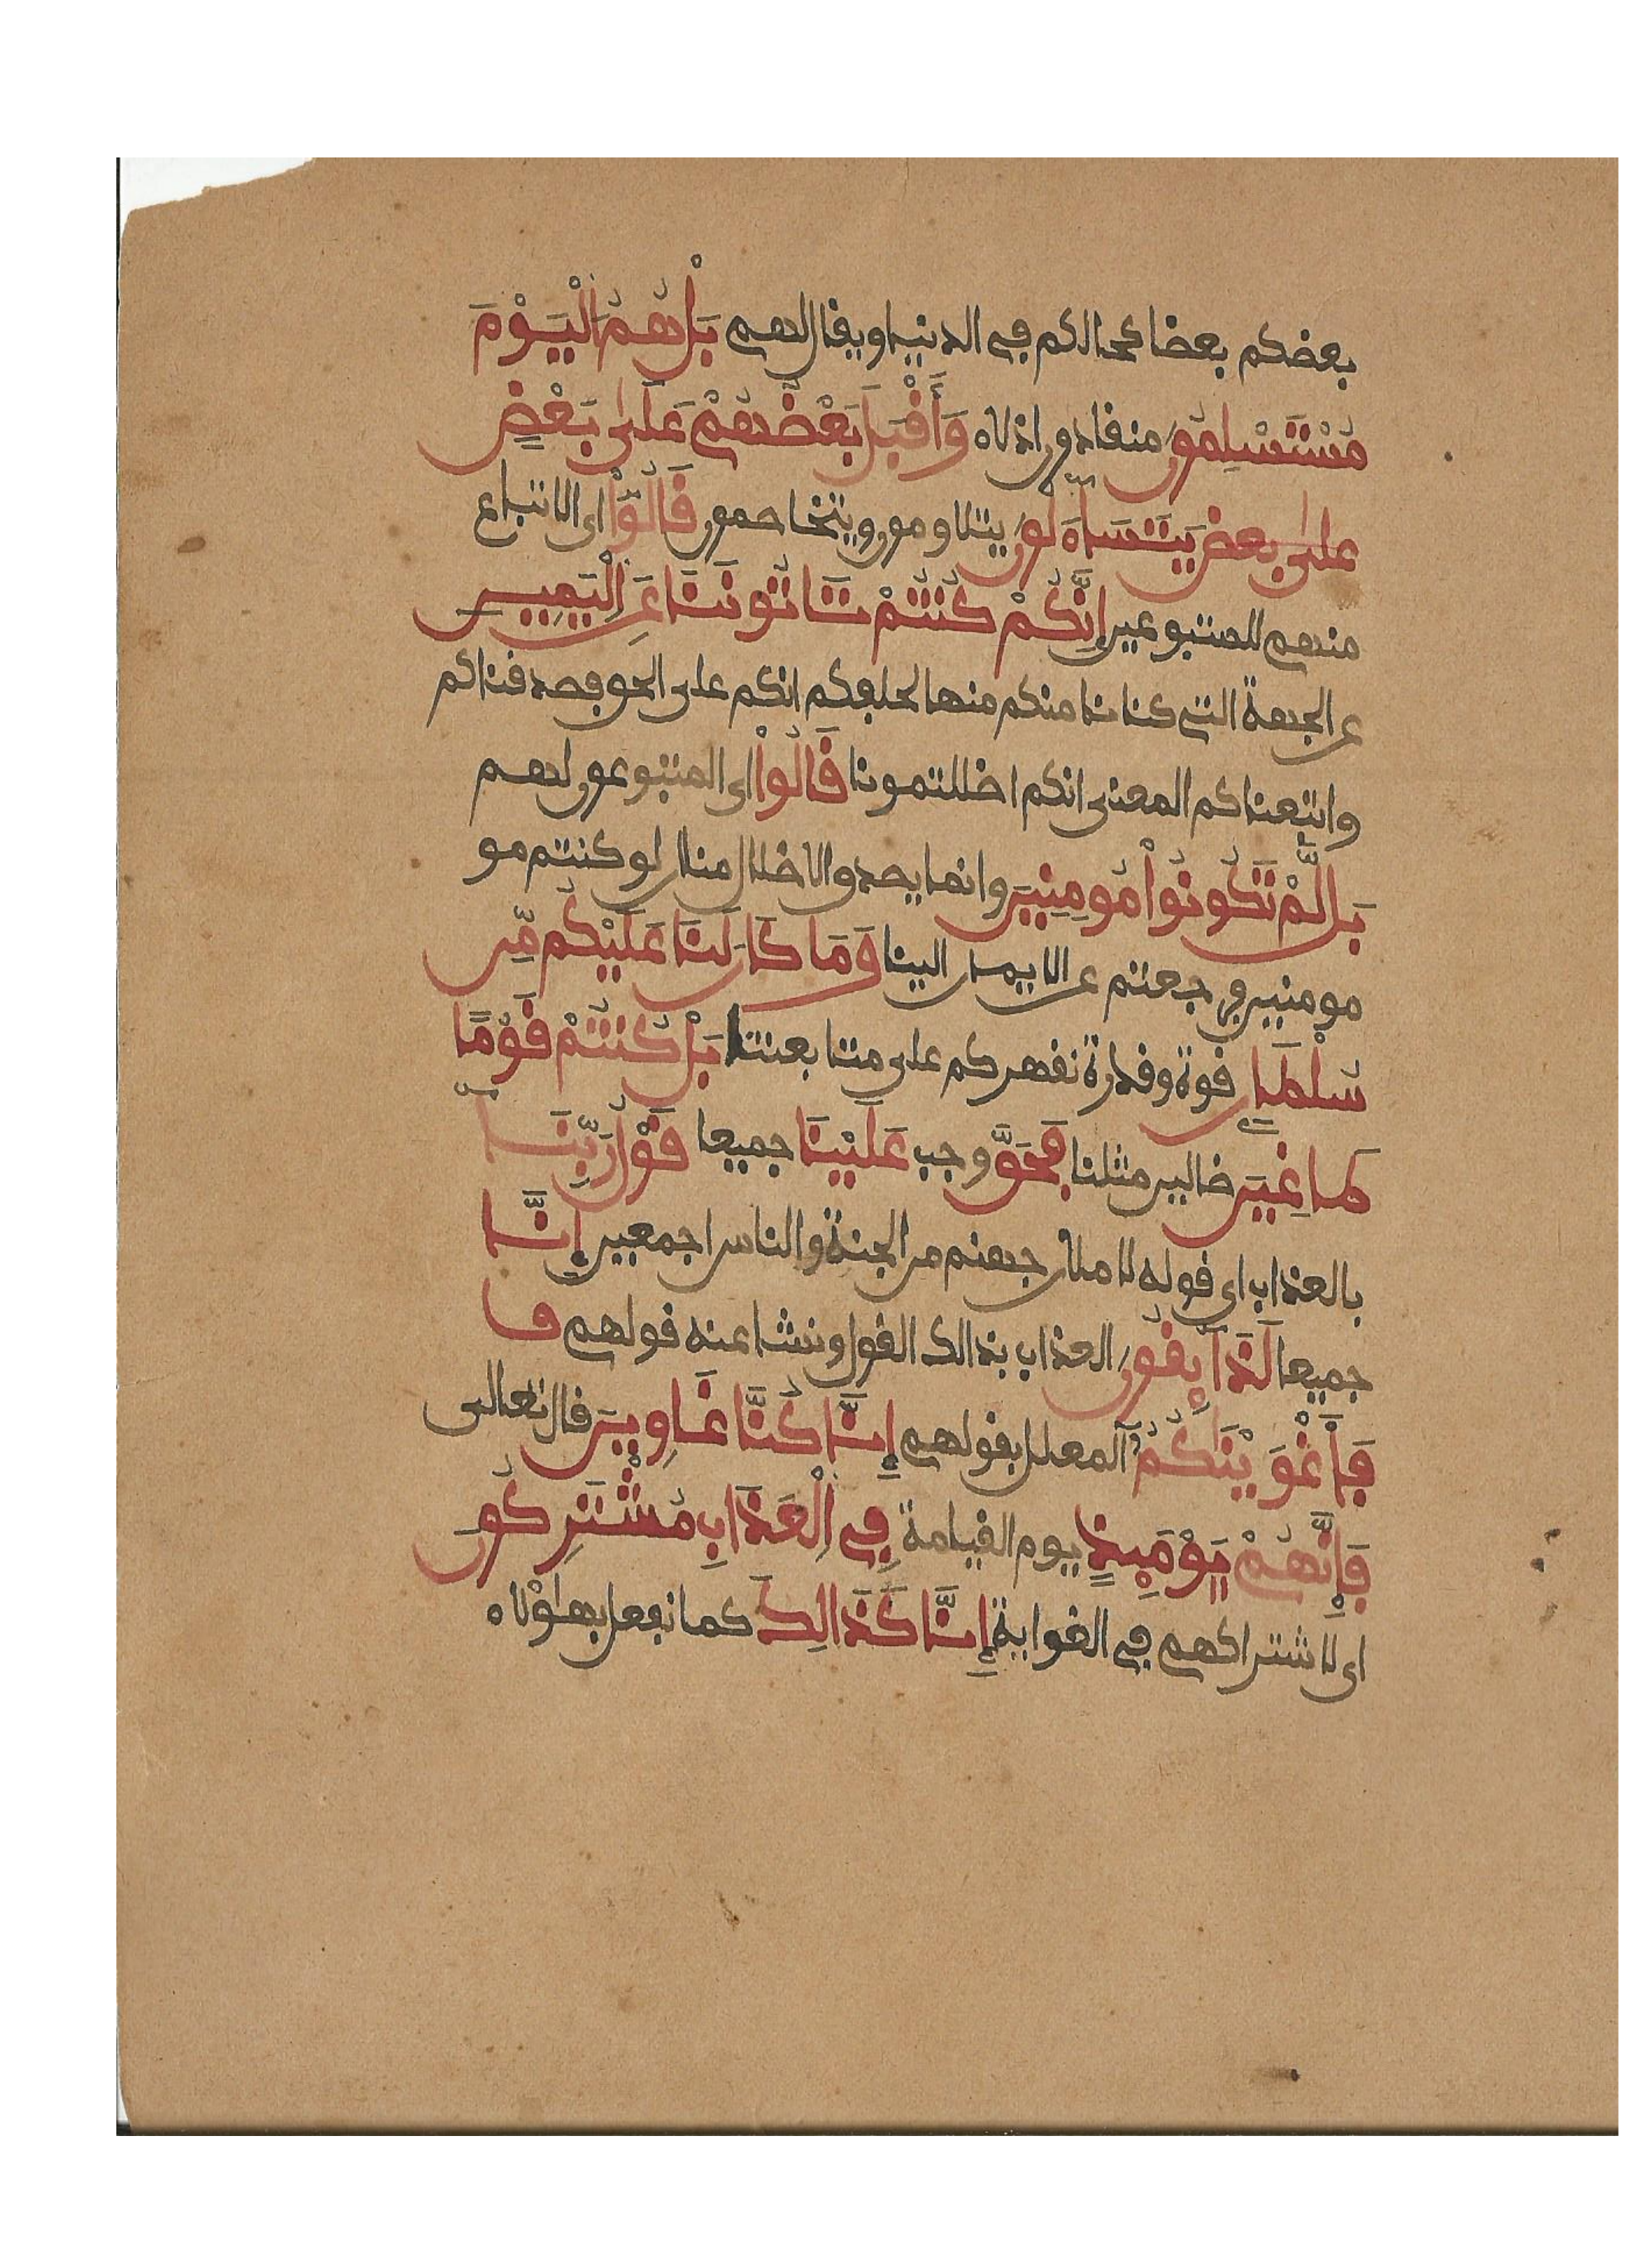 بعضكم بعضا كحالكم في الدنيا ويقال لهم بَلْ هُمُ الْيَوْمَ
مُسْتَسْلِمُونَ منقادون اذلاء وَأَقْبَلَ بَعْضُهُمْ عَلَى بَعْضٍ
على بعض يَتَسَاءَلُونَ يتلاومون ويتخاصمون قَالُوْا اى الاتباع
منهم للمتبوعين إِنَّكُمْ كُنتُمْ تَاتُونَنَا عَنِ الْيَمِينِ
عن الجهة التى كنا نامنكم منها لحلفكم انكم على الحق فصدقناكم
واتبعناكم المعنى انكم اضللتمونا قَالُواْ اى المتبوعون لهم
بَل لَّمْ تَكُونُواْ مُومِنِينَ وانما يصدق الاضلال منا ان لو كنتم مو
مومنين فرجعتم عن الايمان الينا وَمَا كَانَ لَنَا عَلَيْكُم مِّن
سُلْطَانٍ قوة وقدرة نقهركم على متابعتنا بَلْ كُنتُمْ قَوْمًا
طَاغِينَ ضالين مثلنا فَحَقَّ وجب عَلَيْنَا جميعا قَوْلُ رَبِّنَا
بالعذاب اى قوله لاملان جهنم من الجنة والناس اجمعين إِنَّا
جميعا لَذَآئِقُونَ العذاب بذالك القول ونشا عنه قولهم فا
فَأَغْوَيْنَاكُمُ المعلل بقولهم إِنَّا كُنَّا غَاوِينَ قال تعالى
فَإِنَّهُمْ يَوْمَئِذٍ يوم القيامة فِي الْعَذَابِ مُشْتَرِكُونَ
اى لاشتراكهم في الغواية إِنَّا كَذَالِكَ كما نفعل بهاؤلاء